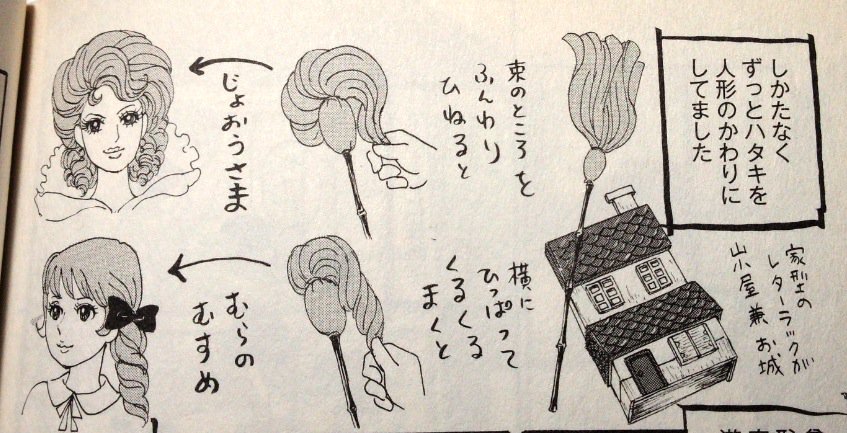 しかたなく
ずっとハタキを
人形のかわりに
してました
家型の
レターラックが
小屋兼お城
束のところを
ふんわり
ひねると
じょおうさま
横に
ひっぱって
くるくる
まくと
むらの
むすめ